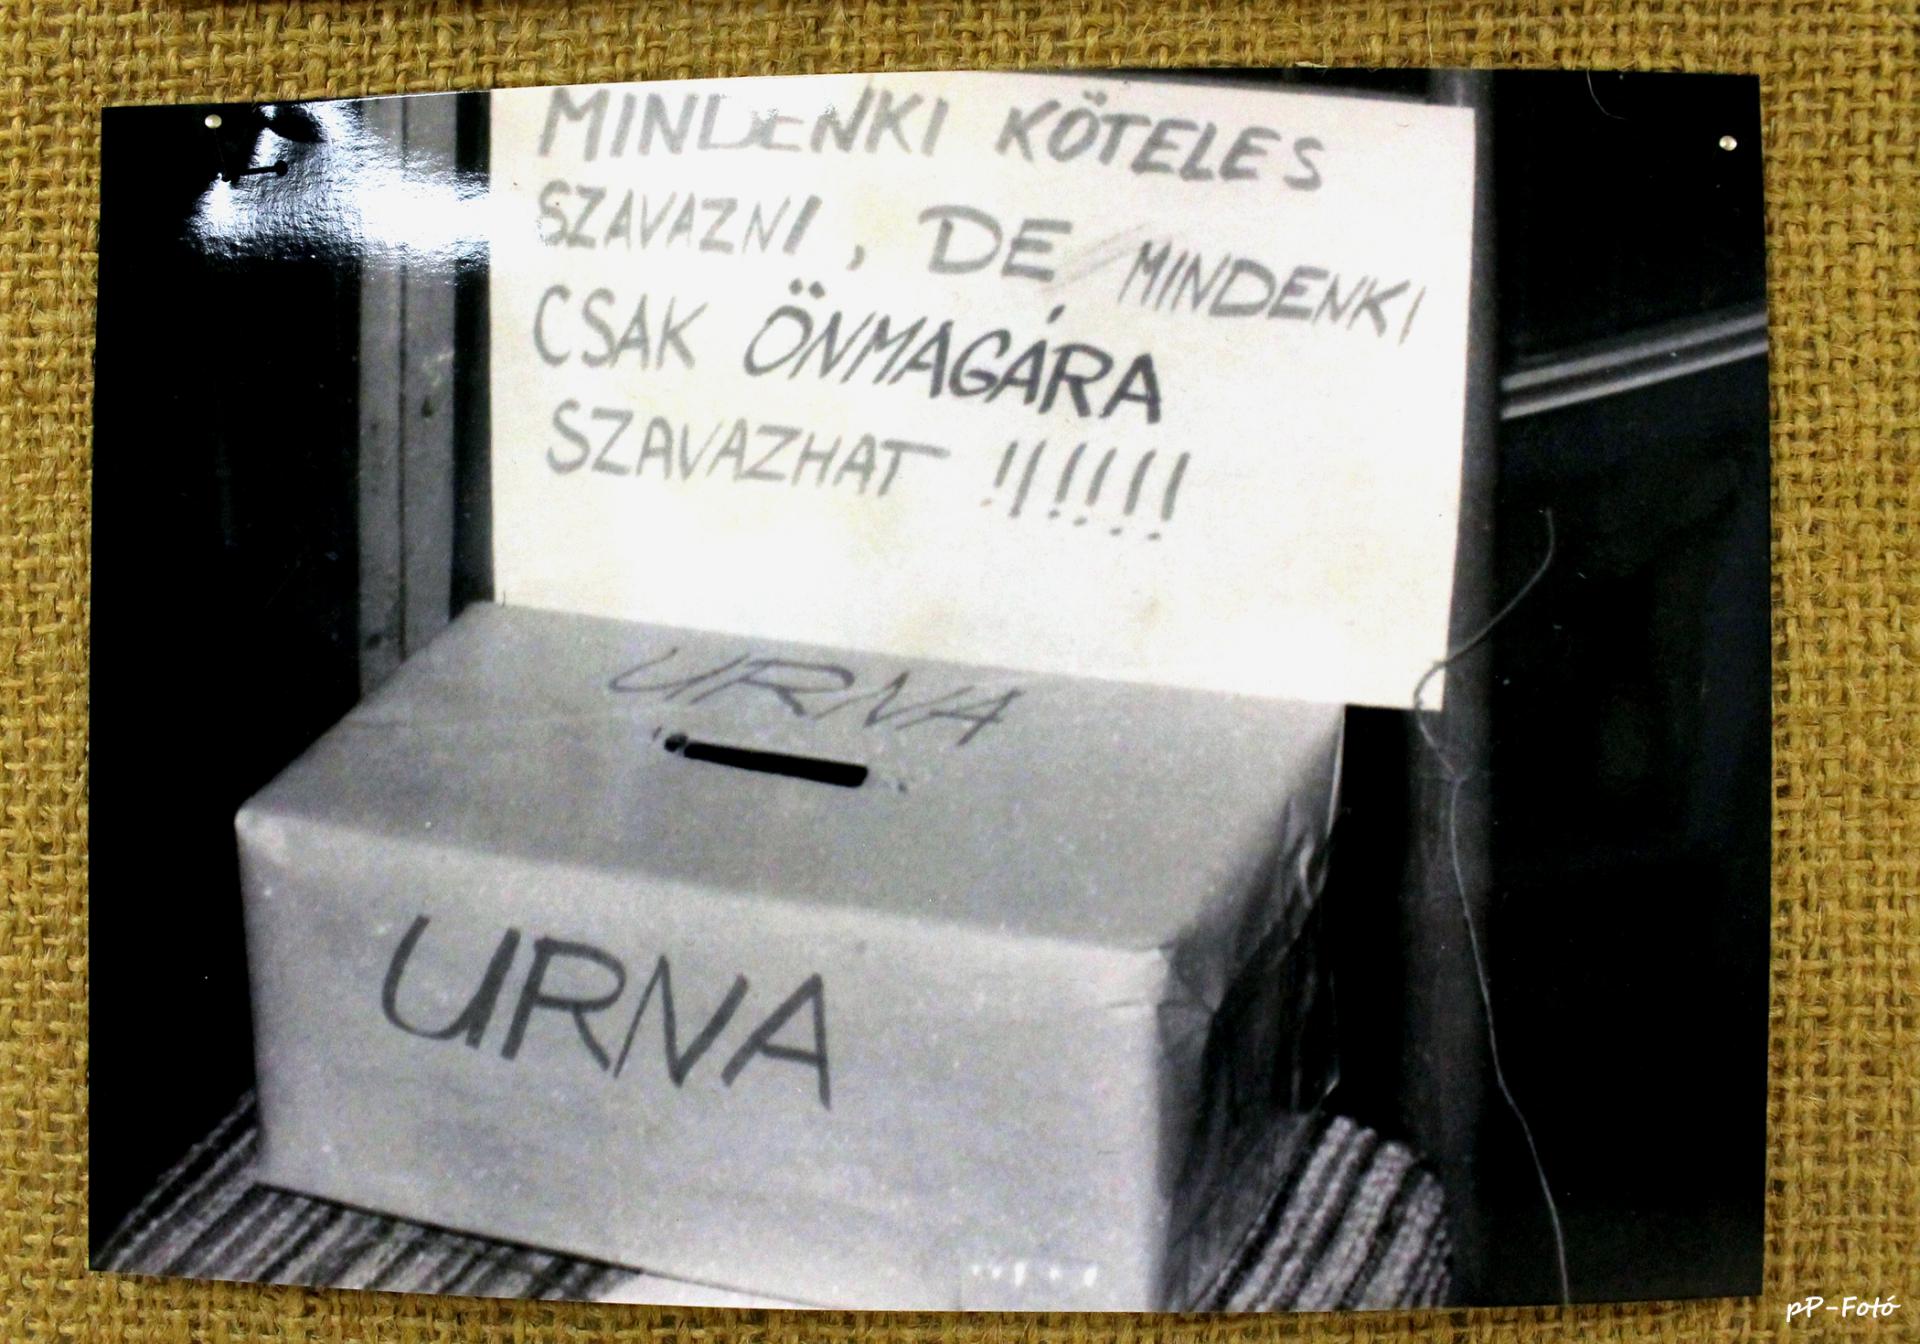 MINDENKI KÖTELES
SZAVAZNI, DE MINDENKI
CSAK ÖNMAGÁRA
SZAVAZHAT !!!!!!
URNA
URNA
pP-Fotó